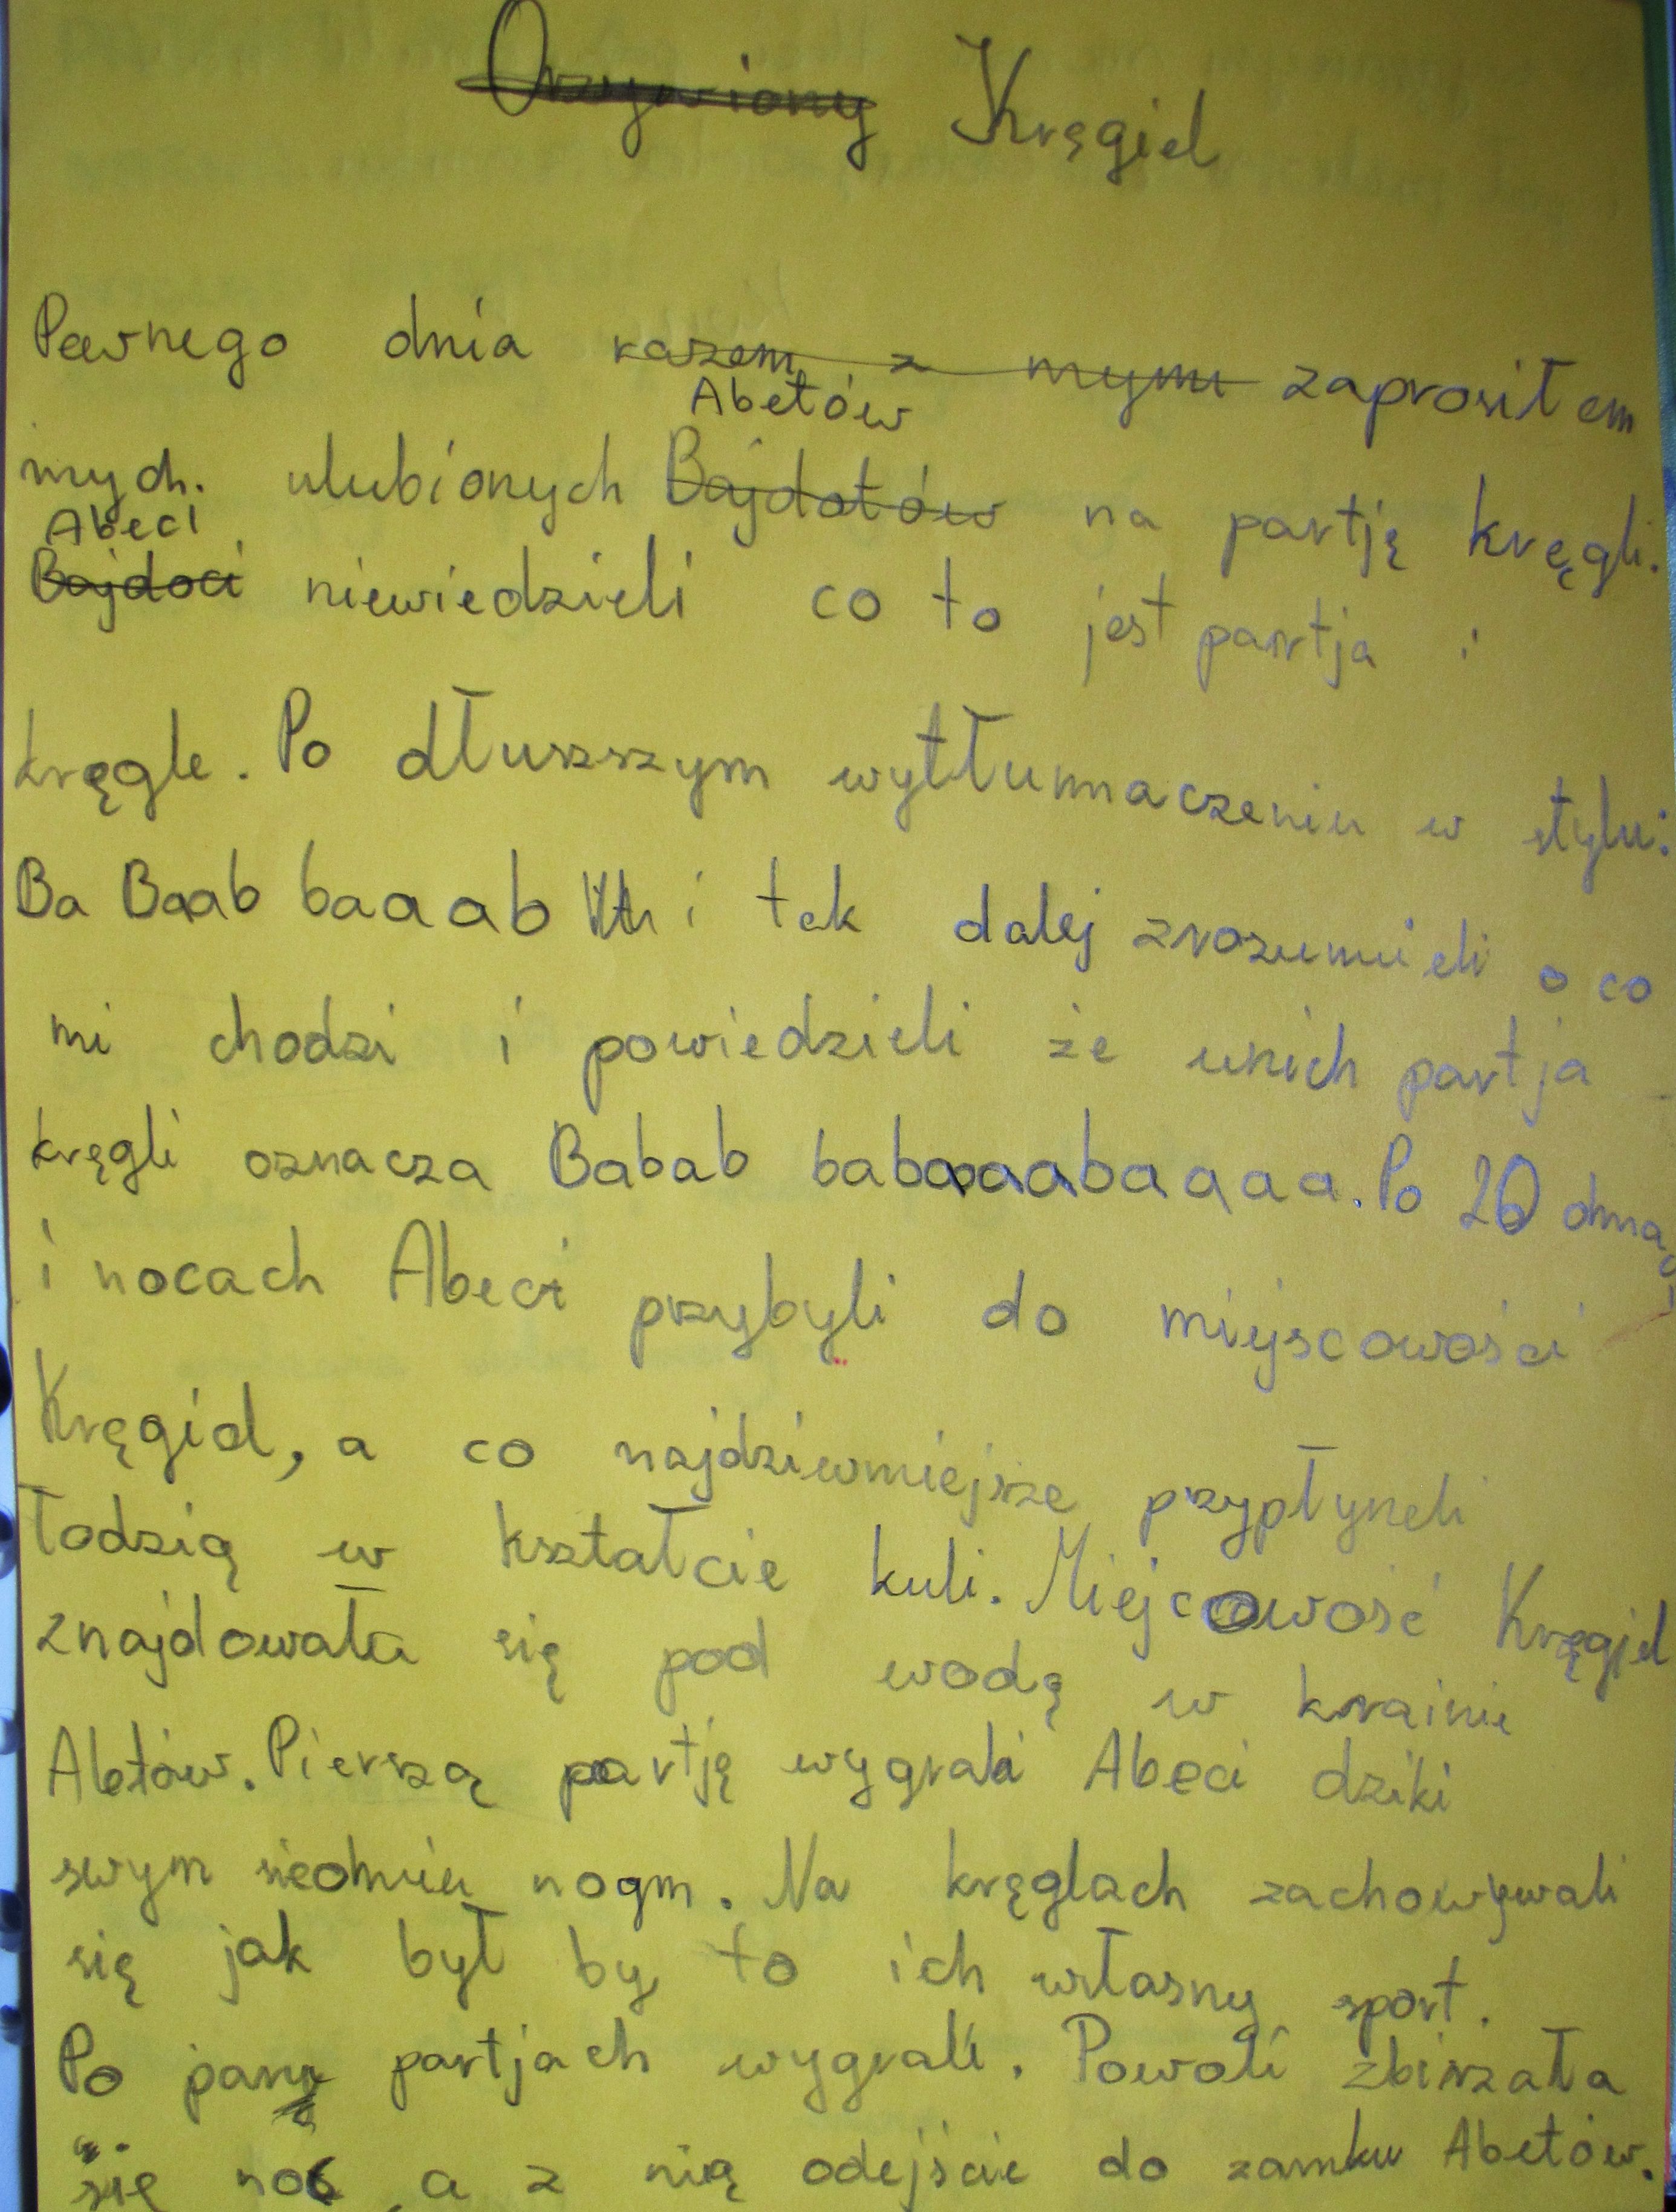 Kręgiel
Pewnego dnia razem z mymi zaprosiłem
Abetów
mych. ulubionych Bajdotów na partję kręgli.
Abeci
Bajdoci niewiedzieli co to jest partja i
kręgle. Po dłuszszym wytłumaczeniu w stylu:
Ba Baab baaab i tak dalej zrozumieli o co
mi chodzi i powiedzieli że unich partja
kręgli oznacza Babab babaaaabaaaaa. Po 20 dniach
i nocach Abeci przybyli do miejscowości
Kręgiel, a co najdziwniejsze przypłyneli
łodzią w kształcie kuli. Miejcowość Kręgiel
znajdowała się pod wodą w krainie
Abetów. Pierszą partję wygrali Abeci dziki
swym siedmiu nogm. Na kręglach zachowywali
się jak był by to ich własny sport.
Po paru partjach wygrali. Powoli zbirzała
się noc a z nią odejście do zamku Abetów.